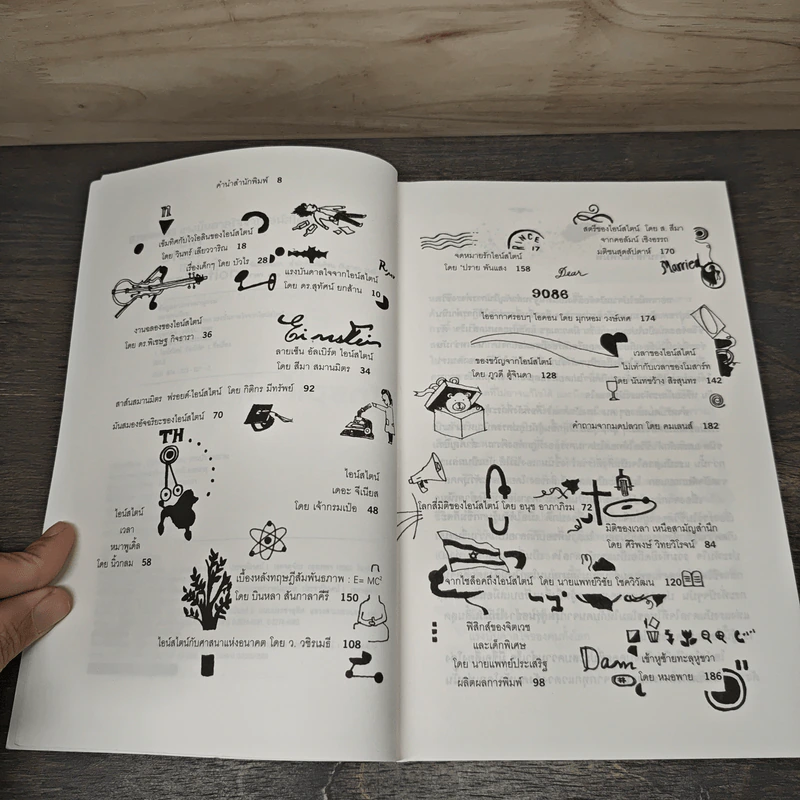 คำนำสำนักพิมพ์ 8
เข็มทิศกับไวโอลินของไอน์สไตน์
โดย วินทร์ เลียววาริณ 18
เรื่องเด็กๆ โดย บัวไร 28
แรงบันดาลใจจากไอน์สไตน์
โดย ดร.สุทัศน์ ยกส้าน 10
งานฉลองของไอน์สไตน์
โดย ดร.พิเชษฐ กิจธารา 36
Einstein
ลายเซ็น อัลเบิร์ต ไอน์สไตน์
โดย สีมา สมานมิตร 34
สาส์นสมานมิตร ฟรอยด์-ไอน์สไตน์ โดย กิติกร มีทรัพย์ 92
มันสมองอัจฉริยะของไอน์สไตน์ 70
TH
ไอน์สไตน์
เดอะ จีเนียส
โดย เจ้ากรมเป๋อ 48
ไอน์สไตน์
เวลา
หมาพูเดิ้ล
โดย นิวกลม 58
เบื้องหลังทฤษฎีสัมพันธภาพ : E= MC²
โดย บินหลา สันกาลาคีรี 150
ไอน์สไตน์กับศาสนาแห่งอนาคต โดย ว. วชิรเมธี 108
สตรีของไอน์สไตน์ โดย ส. สีมา
จากคอลัมน์ เชิงอรรถ
มติชนสุดสัปดาห์ 170
จดหมายรักไอน์สไตน์
โดย 'ปราย พันแสง 158
Dear
Married
9086
ไออากาศรอบๆ ไอคอน โดย มุกหอม วงษ์เทศ 174
ของขวัญจากไอน์สไตน์
โดย ภูวดี ตู้จินดา 128
เวลาของไอน์สไตน์
ไม่เท่ากับเวลาของโมสาร์ท
โดย นันทขว้าง สิรสุนทร 142
@
คำถามจากมดปลวก โดย คมเลนส์ 182
โลกสี่มิติของไอน์สไตน์ โดย อนุช อาภาภิรม 72
มิติของเวลา เหนือสามัญสำนึก
โดย ศิริพงษ์ วิทยวิโรจน์ 84
จากไซล็อคถึงไอน์สไตน์ โดย นายแพทย์วิชัย โชควิวัฒน 120
ฟิสิกส์ของจิตเวช
และเด็กพิเศษ
โดย นายแพทย์ประเสริฐ
ผลิตผลการพิมพ์ 98
Dam
เข้าหูซ้ายทะลุหูขวา
# โดย หมอพาย 186